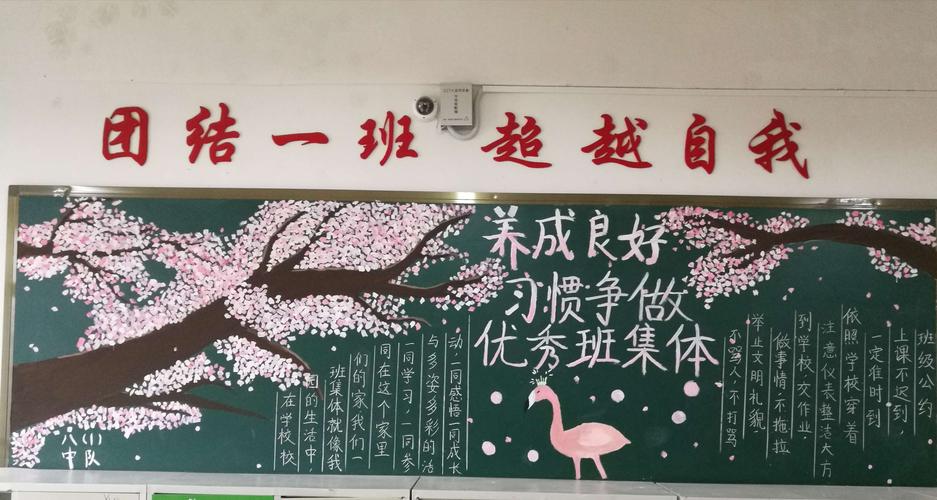 团结一班 超越自我
养成良好
习惯争做
优秀班集体
在学校校
园的生活中，
班集体就像我
们的家我们一
同在这个家里
一同学习，一同参
与多姿多彩的活
动，一同感悟一同成长
班级公约
上课不迟到，
一定准时到
依照学校穿着
注意仪表整洁大方
到学校交作业，
做事情，不拖拉
举止文明礼貌
不骂人，不打骂
八(1)
中队